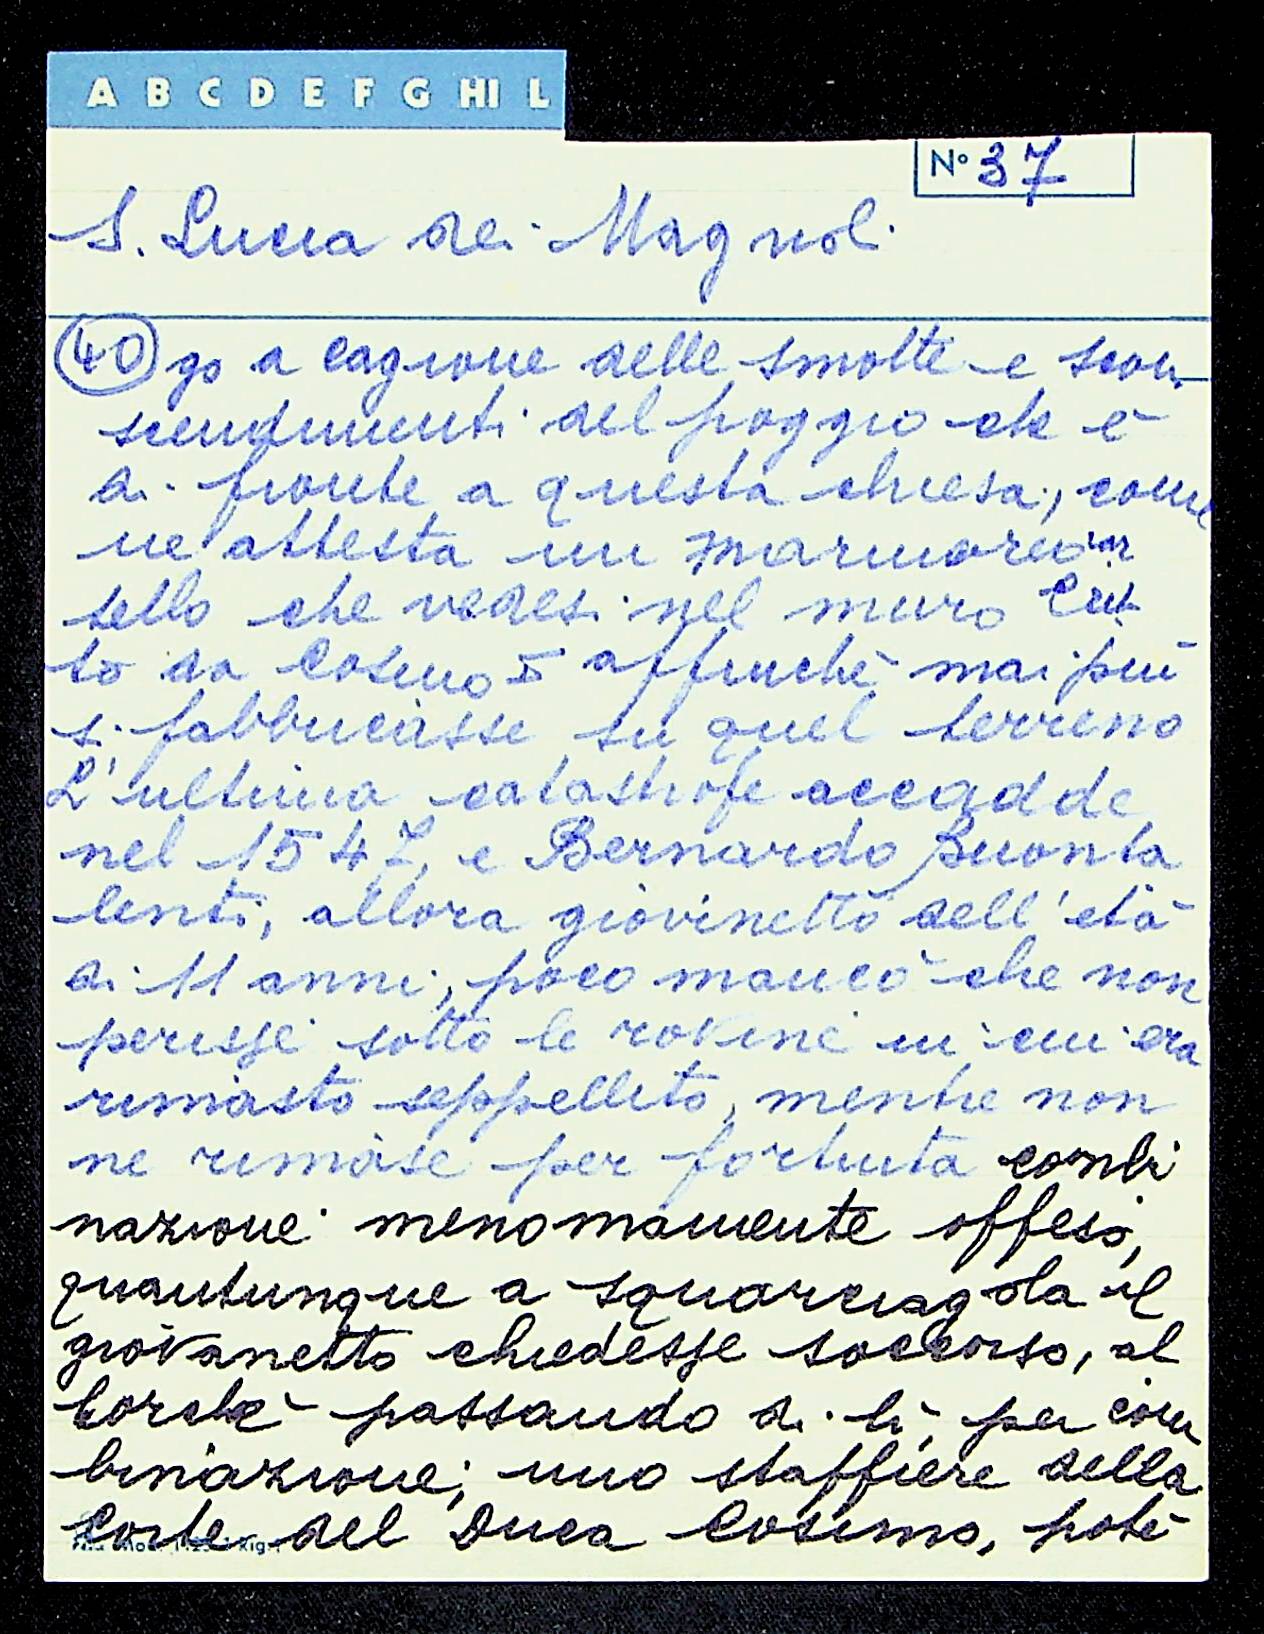 A B C D E F G HI L
N° 37
S. Lucia dei Magnoli
40 go a cagione delle smotte e scon
scendimenti del poggio che è
di fronte a questa chiesa, come
ne attesta un marmoreo car
tello che vedesi nel muro
to da Cosimo I affinchè mai più
si fabbricasse su quel terreno
L'ultima catastrofe accadde
nel 1547, e Bernardo Buonta
lenti, allora giovinetto dell'età
di 11 anni, poco mancò che non
perisse sotto le rovine in cui era
rimasto seppellito, mentre non
ne rimase per fortuita combi
nazione menomamente offeso,
quantunque a squarciagola il
giovanetto chiedesse soccorso, al
lorchè passando di lì, per com
binazione, uno staffiere della
Corte del Duca Cosimo, potè